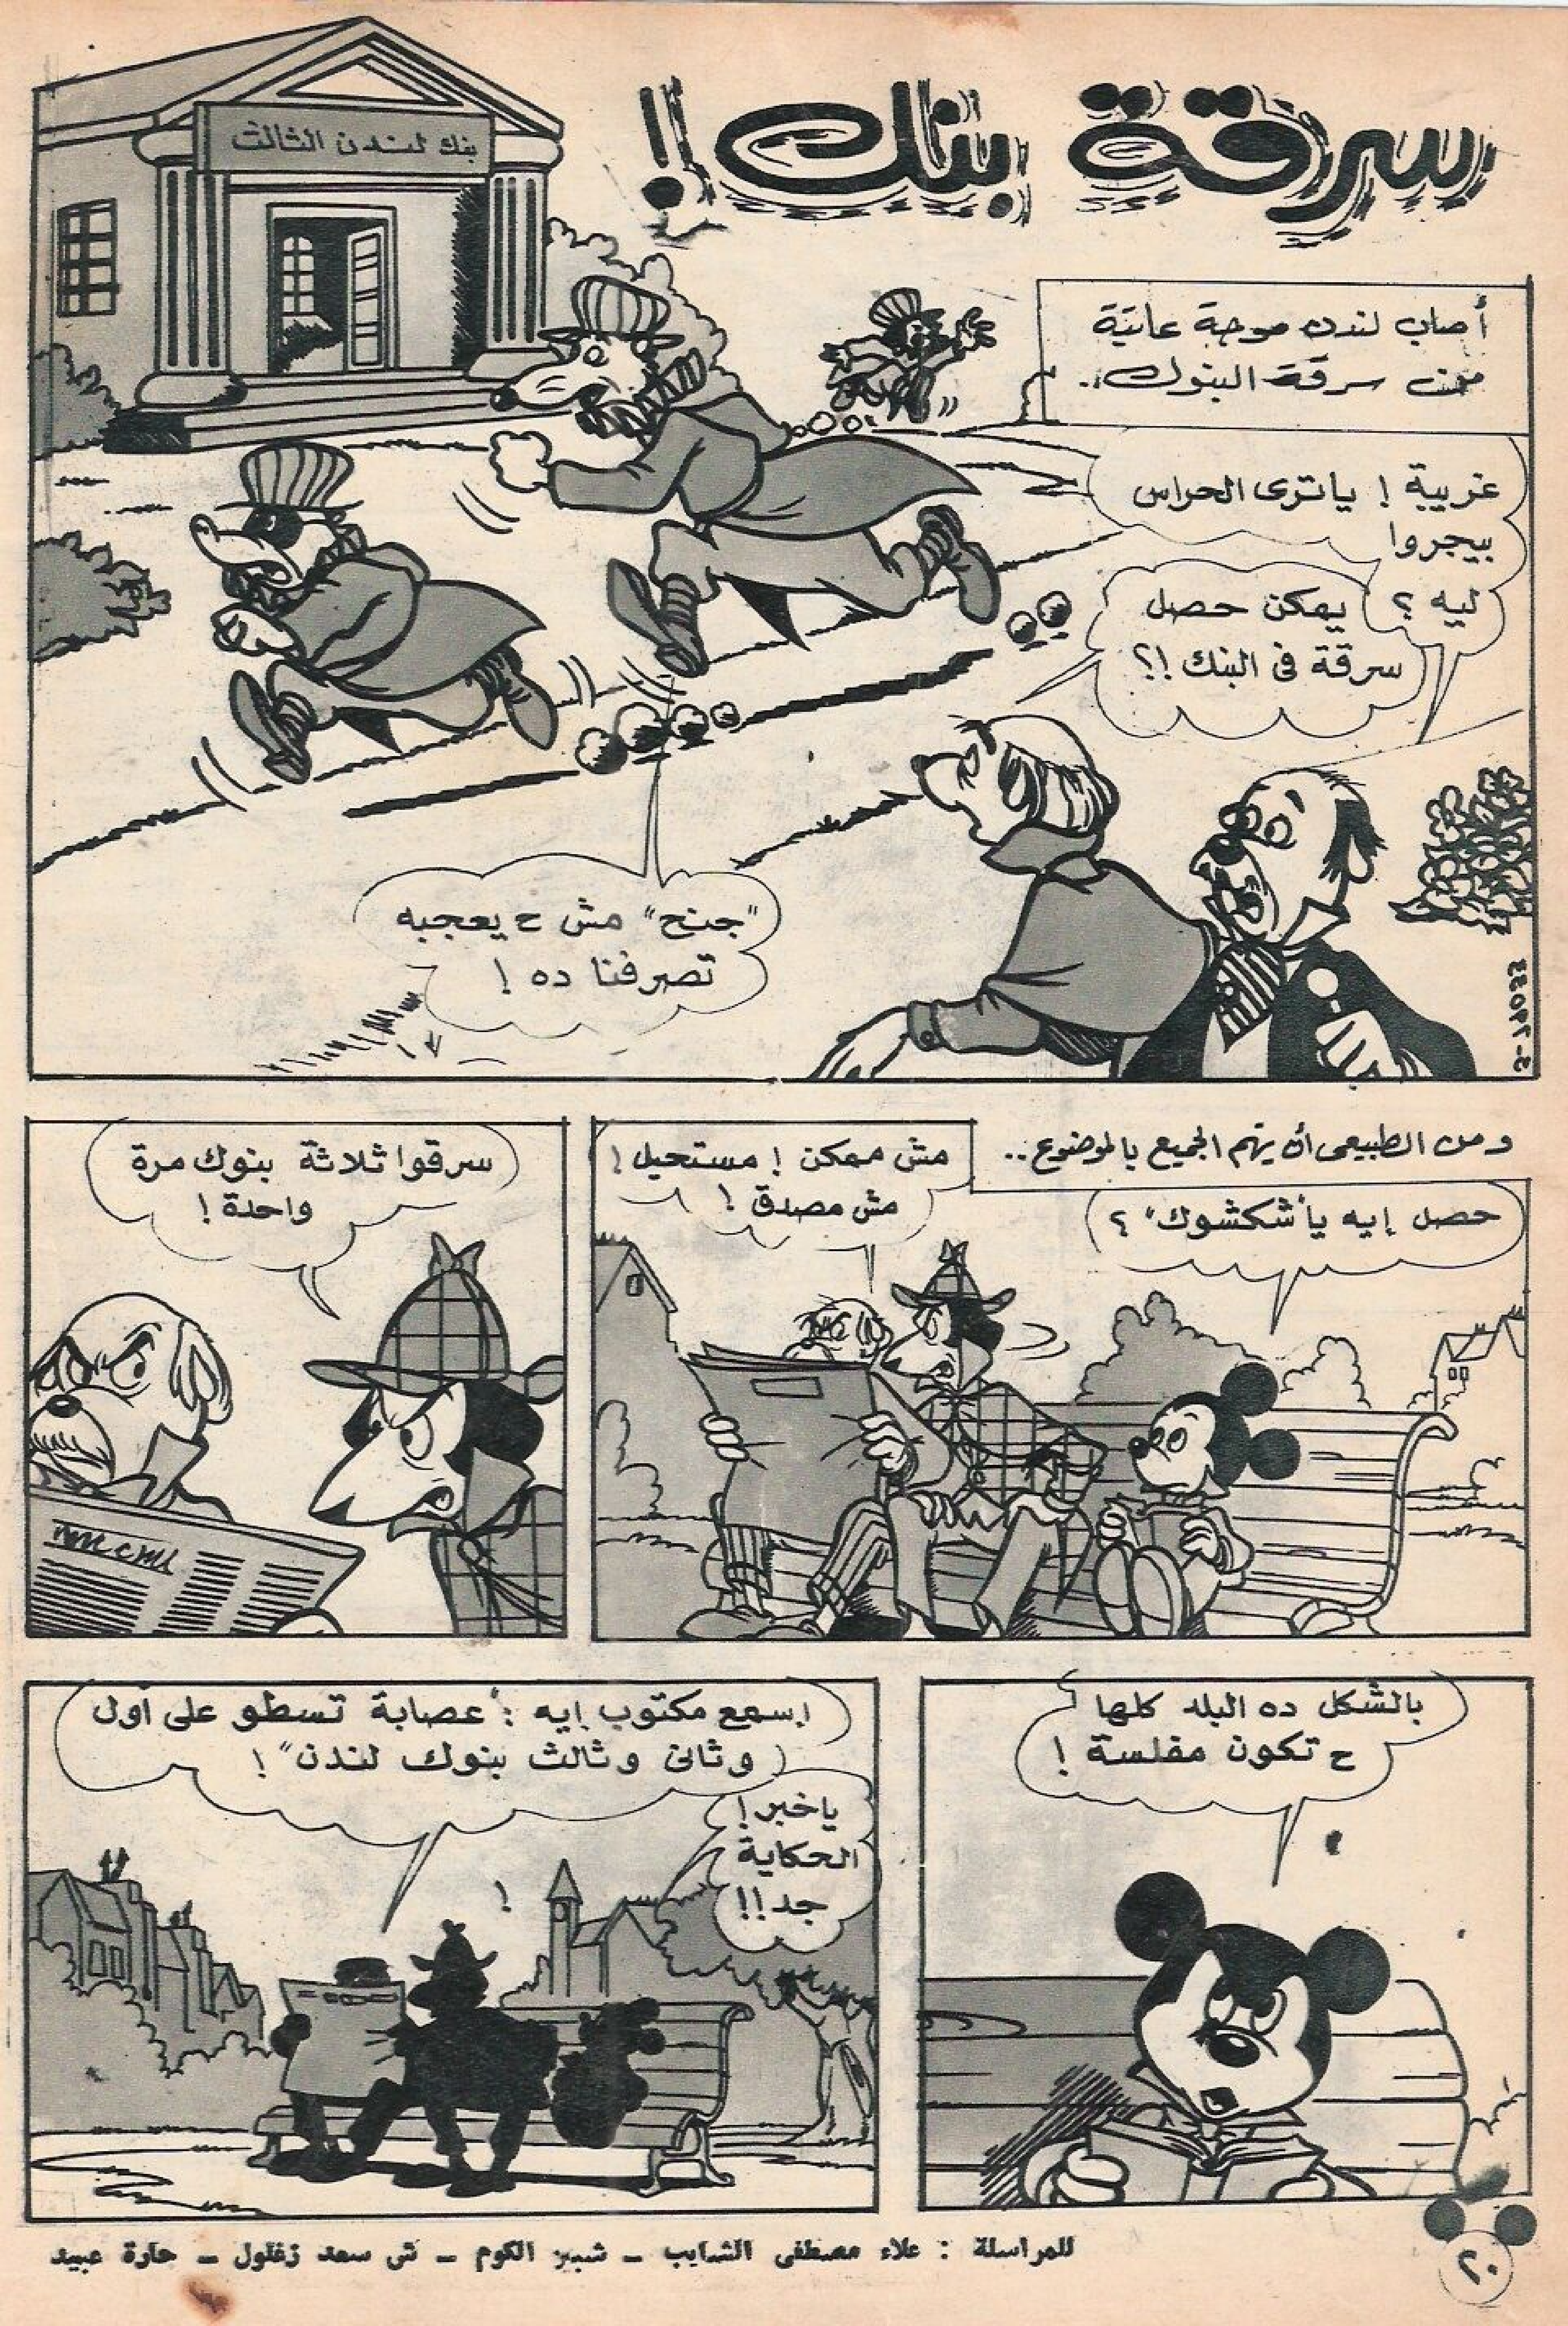 سرقة بنك!
بنك لندن الثالث
أصاب لندن موجة عاتية
من سرقة البنوك..
غريبة ! ياترى الحراس
بيجروا
ليه ؟
يمكن حصل
سرقة فى البنك !؟
"جنح" مش ح يعجبه
تصرفنا ده !
S-74033
ومن الطبيعى أن يهتم الجميع بالموضوع..
حصل إيه يا"شكشوك" ؟
مش ممكن ! مستحيل !
مش مصدق !
سرقوا ثلاثة بنوك مرة
واحدة !
بالشكل ده البلد كلها
ح تكون مفلسة !
إسمع مكتوب إيه : "عصابة تسطو على أول
وثانى وثالث بنوك لندن" !
ياخبر !
الحكاية
جد !!
!
للمراسلة : علاء مصطفى الشايب – شبين الكوم – ش سعد زغلول – حارة عبيد
٢٠